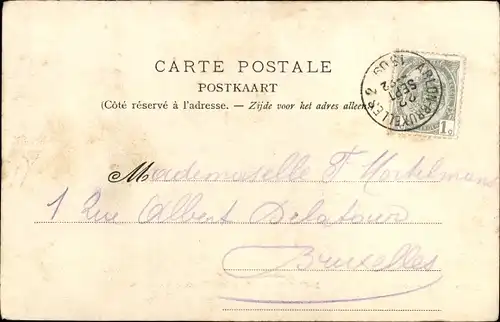 CARTE POSTALE
POSTKAART
(Côté réservé à l'adresse. — Zijde voor het adres alleen
Mademoiselle F Mortelmans
1 Rue Albert Delatour
Bruxelles
BRUXELLES 2
22
SEPT
1c